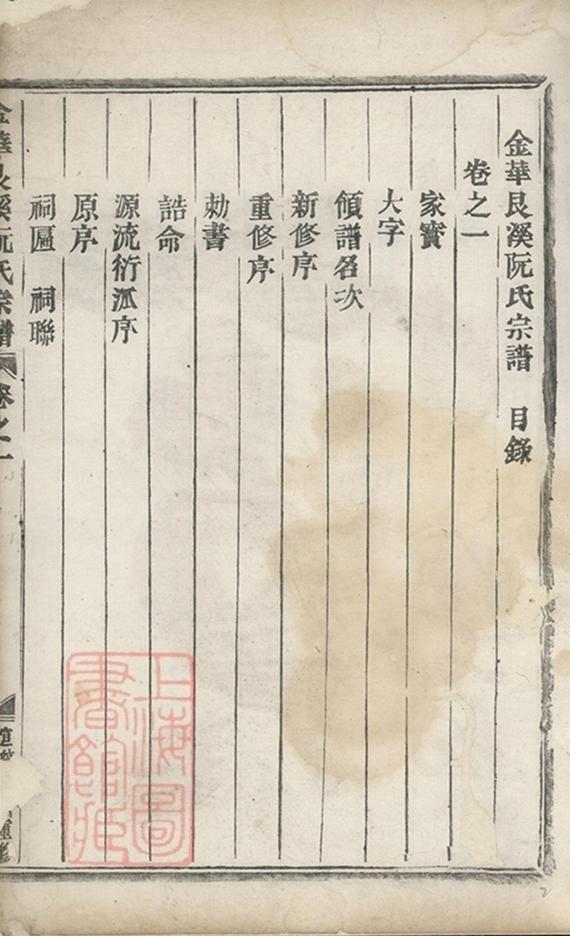 金華艮溪阮氏宗譜 目錄
卷之一
家寶
大字
領譜名次
新修序
重修序
勅書
誥命
源流衍派序
原序
祠匾 祠聯
金華艮溪阮氏宗譜 卷之一
上海圖書館藏